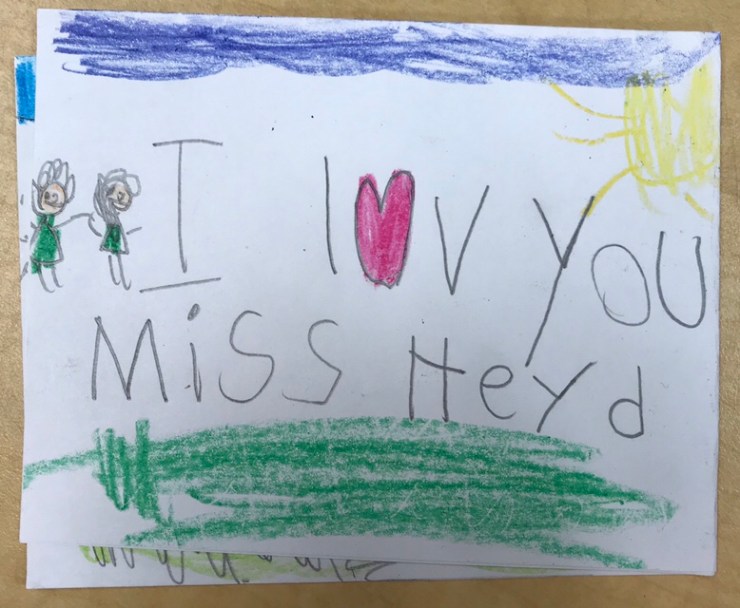 I l♥V YOU
MiSS HeYd